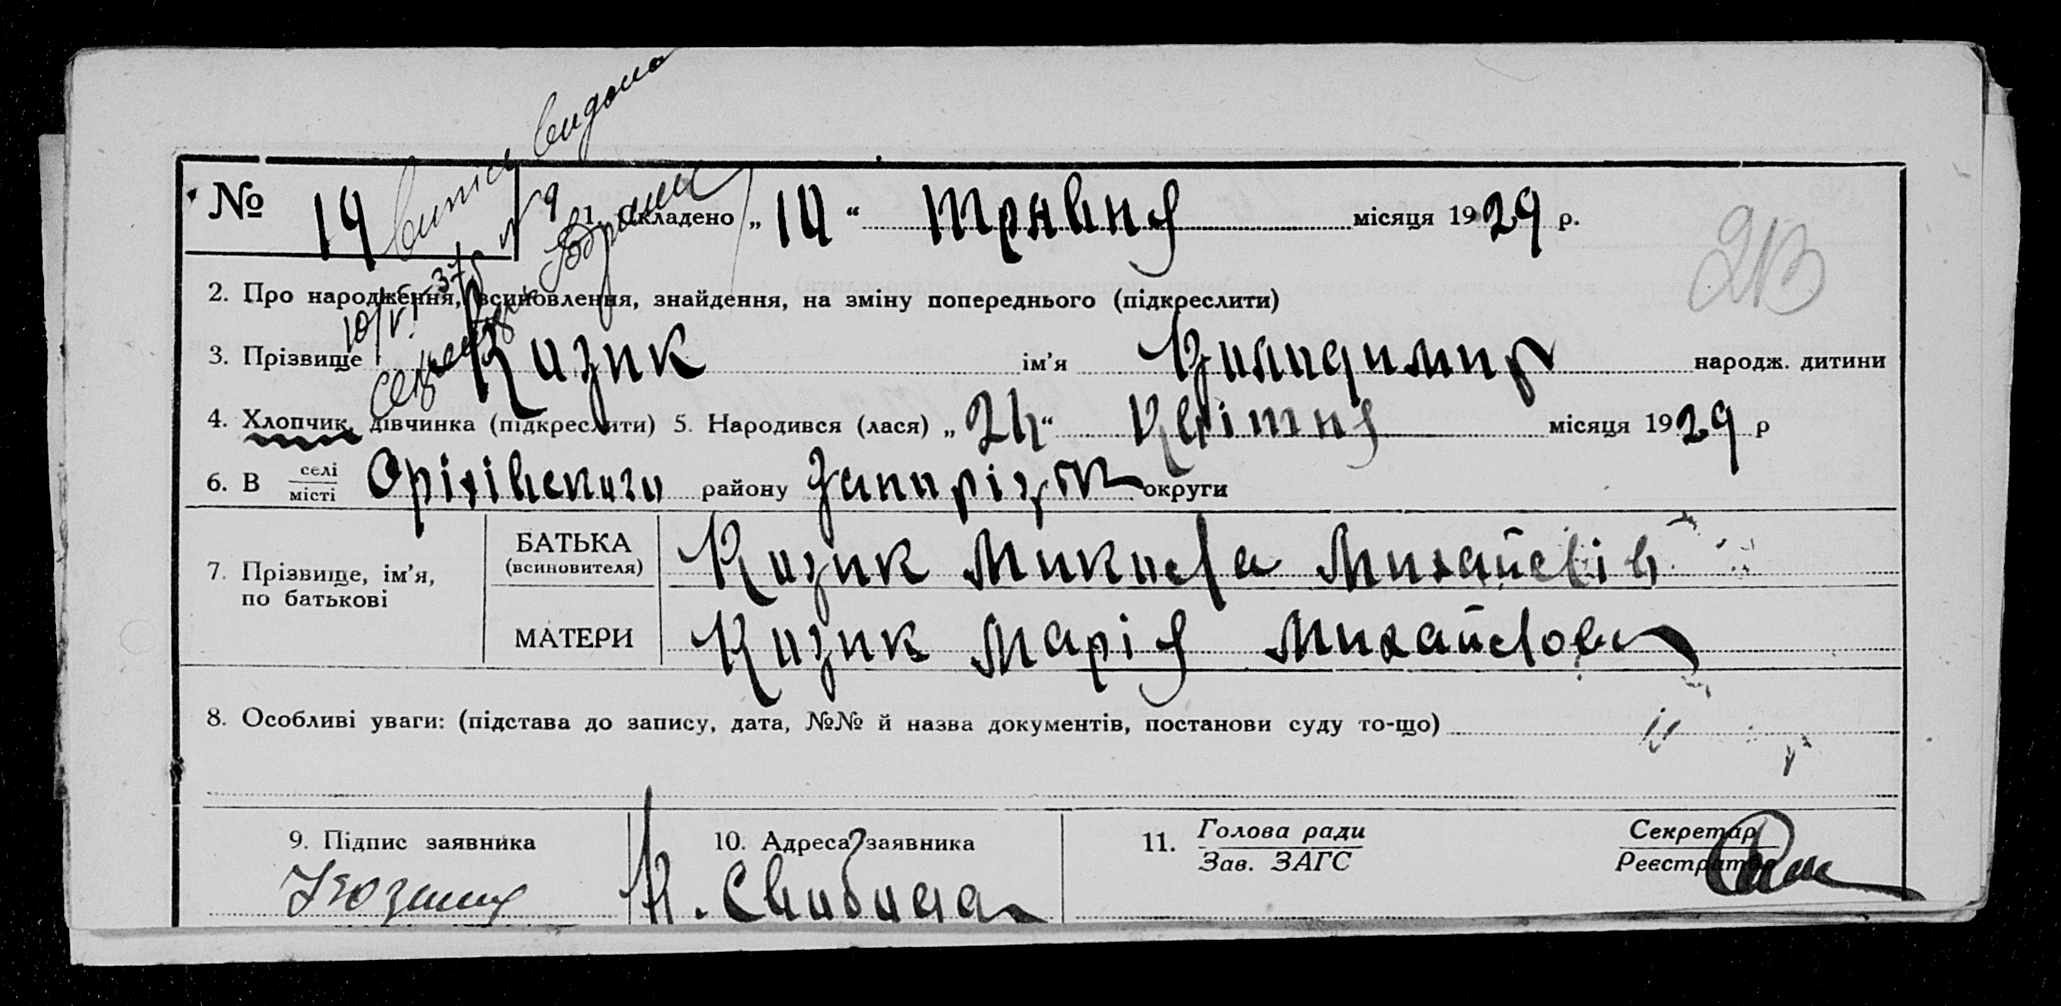 № 14 1. Складено „10“ Травня місяця 1929 р.
Випись видана
10/VI-37 № 9
2. Про народження, всиновлення, знайдення, на зміну попереднього (підкреслити)
3. Прізвище Кизик ім’я Володимир народж. дитини
4. Хлопчик, дівчинка (підкреслити) 5. Народився (лася) „24“ Квітня місяця 1929 р
6. В селі місті Оріхівського району Запоріж округи
7. Прізвище, ім’я, по батькові
БАТЬКА (всиновителя) Кизик Микола Михайлів
МАТЕРИ Кизик Марія Михайлова
8. Особливі уваги: (підстава до запису, дата, №№ й назва документів, постанови суду то-що)
9. Підпис заявника 10. Адреса заявника 11. Голова ради Зав. ЗАГС Секретар Реєстратор
К. Слобода